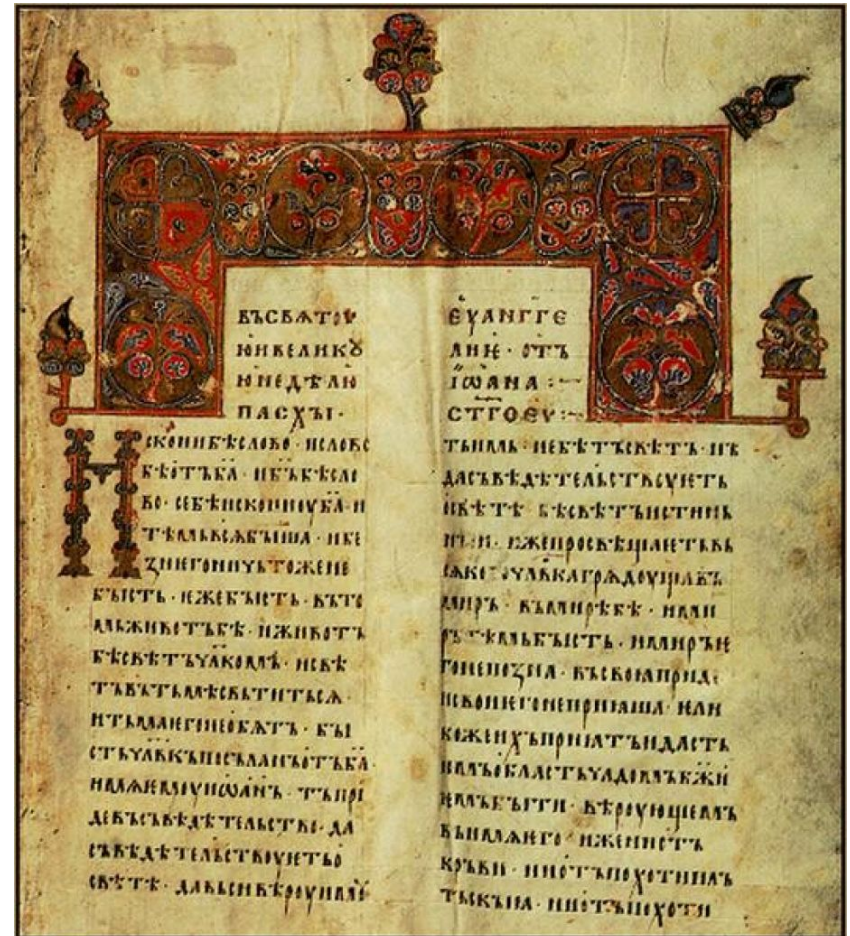 ВЪСВѦТОУ
ЮИВЕЛИКꙊ
ЮНЕДѢЛЮ
ПАСХЫ·
ИСКОНИБѢСЛОВО·ИСЛОВО
БѢОТЪБА·ИБЪБѢСЛО
ВО·СЕБѢИСКОНИОУБА·И
ТѢМЬВСѦБЫША·ИБЕ
ЗНЕГОНИЧЬТОЖЕНЕ
БЫСТЬ·ЕЖЕБЫСТЬ·ВЪТО
МЬЖИВОТЪБѢ·ИЖИВОТЪ
БѢСВѢТЪЧЛКОМЪ·ИСВѢ
ТЪВЪТЬМѢСВЬТИТЬСѦ·
ИТЬМАЕГОНЕОБѦТЪ·БЫ
СТЬЧЛВКЪПОСЪЛАНЪОТЪБА·
ИМѦЕМОУИѠАНЪ·ТЪПРІ
ДЕВЪСЪВѢДѢТЕЛЬСТВО·ДА
СЪВѢДѢТЕЛЬСТВОУЕТЬО
СВѢТѢ·ДАВЬСИВѢРОУИМОУ
ЕУАНГГЕ
ЛИѤ·ОТЪ
ІѠАНА:~
СТГОЕУ:~
ТЬИМЬ·НЕБѢТЪСВѢТЪ·НЪ
ДАСЪВѢДѢТЕЛЬСТВОУЕТЬ
ОСВѢТѢ·БѢСВѢТЪИСТИНЬ
НЫИ·ИЖЕПРОСВѢЩАЕТЬВЬ
СЯКОГОЧЛВКАГРѦДОУЩАВЪ
МИРЪ·ВЪМИРѢБѢ·ИМИ
РЪТѢМЬБЫСТЬ·ИМИРЪѤ
ГОНЕПОЗНА·ВЪСВОЯПРИДЕ
ИСВОИЕГОНЕПРИЯША·ЕЛИ
КОЖЕИХЪПРИЯТЪИДАСТЬ
ИМЪОБЛАСТЬЧАДОМЪБЖИ
ЕМЪБЫТИ·ВѢРОУЮЩЕМЪ
ВЪИМѦЕГО·ИЖЕНИОТЪ
КРЪВИ·НИОТЪПОХОТИПЛЪ
ТЬСКЫЯ·НИОТЪПОХОТИ